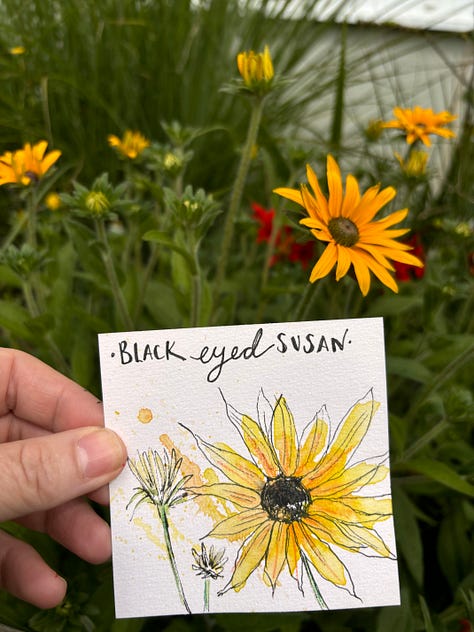 ·BLACK eyed SUSAN·